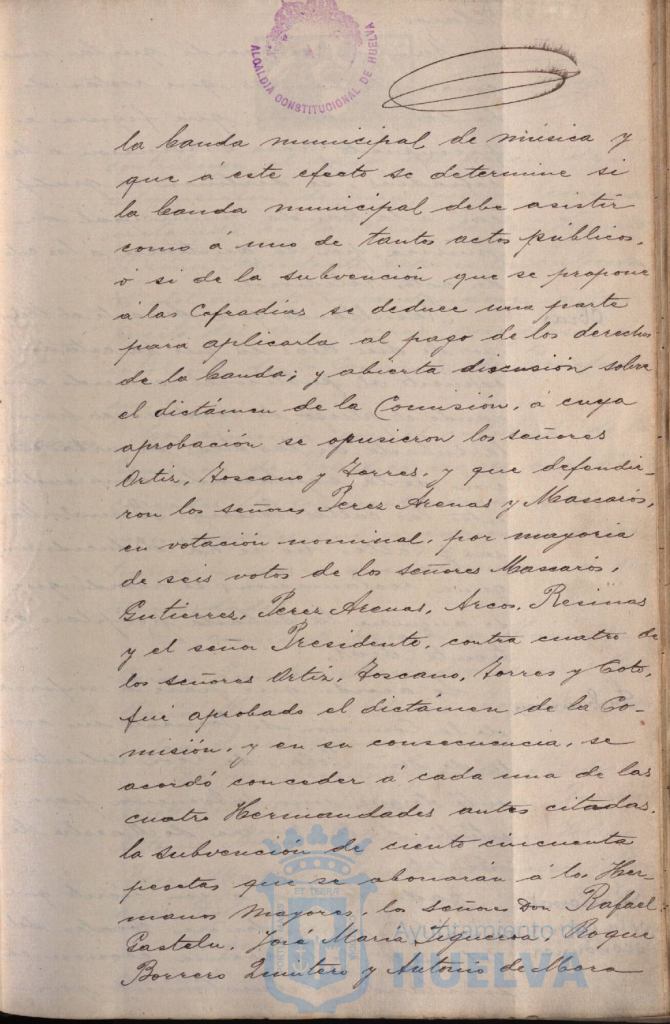 ALCALDIA CONSTITUCIONAL DE HUELVA
la banda municipal de música y
que á este efecto se determine si
la banda municipal debe asistir
como á uno de tantos actos públicos,
ó si de la subvención que se propone
á las Cofradías se deduce una parte
para aplicarla al pago de los derechos
de la banda; y abierta discusión sobre
el dictámen de la Comisión, á cuya
aprobación se opusieron los señores
Ortiz, Toscano y Torres, y que defendie-
ron los señores Perez Arenas y Mascarós,
en votación nominal, por mayoria
de seis votos de los señores Mascarós,
Gutierrez, Perez Arenas, Arcos, Resinas
y el señor Presidente, contra cuatro de
los señores Ortiz, Toscano, Torres y Coto,
fué aprobado el dictámen de la Co-
misión, y en su consecuencia, se
acordó conceder á cada una de las
cuatro Hermandades antes citadas,
la subvención de ciento cincuenta
pesetas que se abonarán á los Her-
manos Mayores, los señores Don Rafael
José María Figueroa, Roque
Borrero Quintero y Antonio de Mora
Ayuntamiento de
HUELVA